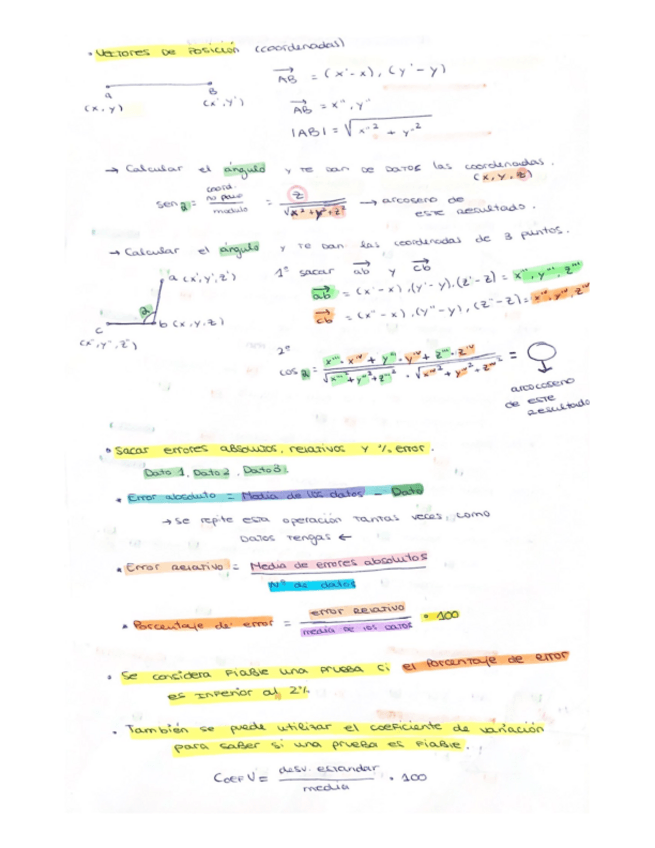 • Vectores de posición (coordenadas)
AB = (x'-x), (y'-y)
a
B
(x, y)
(x', y')
AB = x'', y''
|AB| = √x''² + y''²
→ Calcular el ángulo y te dan de datos las coordenadas.
(x, y, z)
sen 2 = coord. no pone / modulo = z / √x²+y²+z² → arcoseno de este resultado.
→ Calcular el ángulo y te dan las coordenadas de 3 puntos.
1º sacar ab y cb
a (x', y', z')
ab = (x'-x), (y'-y), (z'-z) = x''', y''', z'''
2
c
b (x, y, z)
cb = (x''-x), (y''-y), (z''-z) = x'''', y'''', z''''
(x'', y'', z'')
2º
cos 2 = x'''·x'''' + y'''·y'''' + z'''·z'''' / √x'''²+y'''²+z'''² · √x''''²+y''''²+z''''² =
arcocoseno
de este
resultado
• Sacar errores absolutos, relativos y % error.
Dato 1, Dato 2, Dato 3.
• Error absoluto = Media de los datos - Dato
→ se repite esta operación tantas veces, como
datos tengas ←
• Error relativo = Media de errores absolutos / Nº de datos
• Porcentaje de error = error relativo / media de los datos • 100
• Se considera fiable una prueba si el porcentaje de error
es inferior al 2%
• También se puede utilizar el coeficiente de variación
para saber si una prueba es fiable.
Coef V = desv. estandar / media • 100